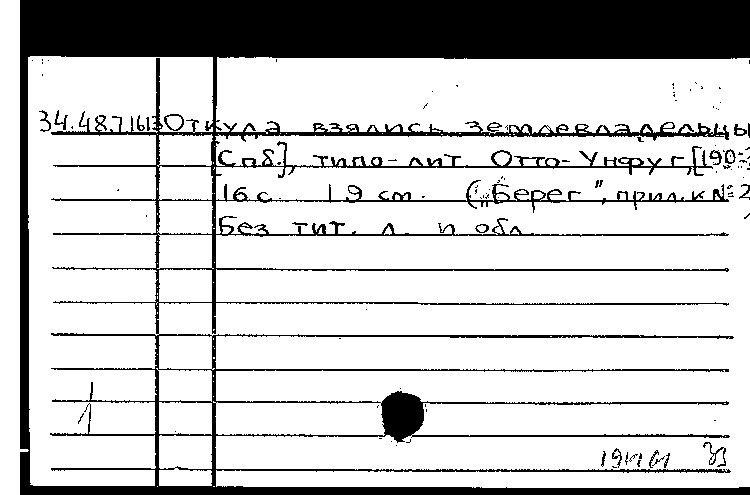 34.48.7.1613 Откуда взялись землевладельцы
[Спб.], типо-лит. Отто-Унфуг,
16 с. 19 см. („Берег", прил. к № 2
Без тит. л. и обл.
1